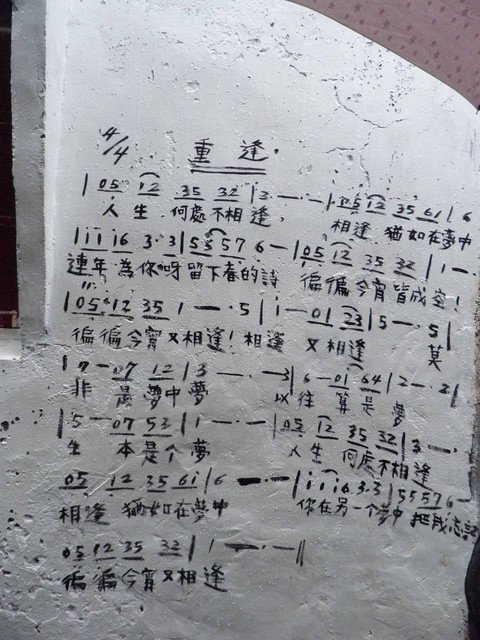 4/4 重逢.
| 05 12 35 32 | 3 — · — | 25 12 35 61 | 6
人生 何處不相逢, 相逢 猶如在夢中
1116 3·3 | 55 57 6 — | 05 12 35 32 | 1 — ·
連年為你呀留下春的詩 徧徧今宵皆成空!
| 05 12 35 1 — · 5 | 1 — 01 23 | 5 — · 5 |
徧徧今宵又相逢! 相逢 又相逢 莫
| 7 — 07 12 | 3 — · — 3 | 6 — 01 64 | 2 — · 2 |
非 是夢中夢 以往 算是 夢
| 5 — 07 53 | 1 — · — | 05 12 35 32 | 3 — · —
生 本是个夢 人生 何處不相逢
05 12 35 61 | 6 — · — | 1116 3·3 | 55 57 6 —
相逢 猶如在夢中 你在另一个夢中 把我忘記
05 12 35 32 | 1 — · — ||
徧徧今宵又相逢